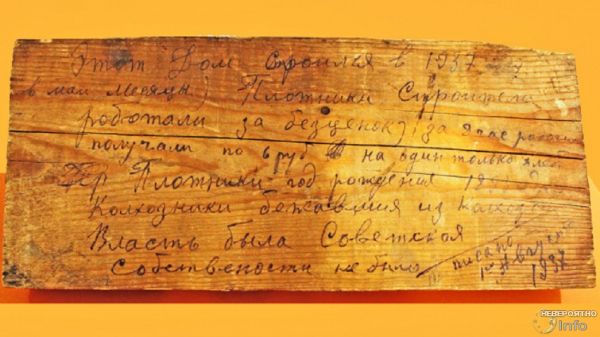 Этот Дом строился в 1937 году
в мае месяцы) Плотники строители
роботали за безценок, за 9 час работы
получали по 6 руб на один только хлеб
Плотники год рождения
Колхозники бежавшия из колхоза
Власть была Советская
Собствености не было писано
1го Августа
1937
НЕВЕРОЯТНО
Info